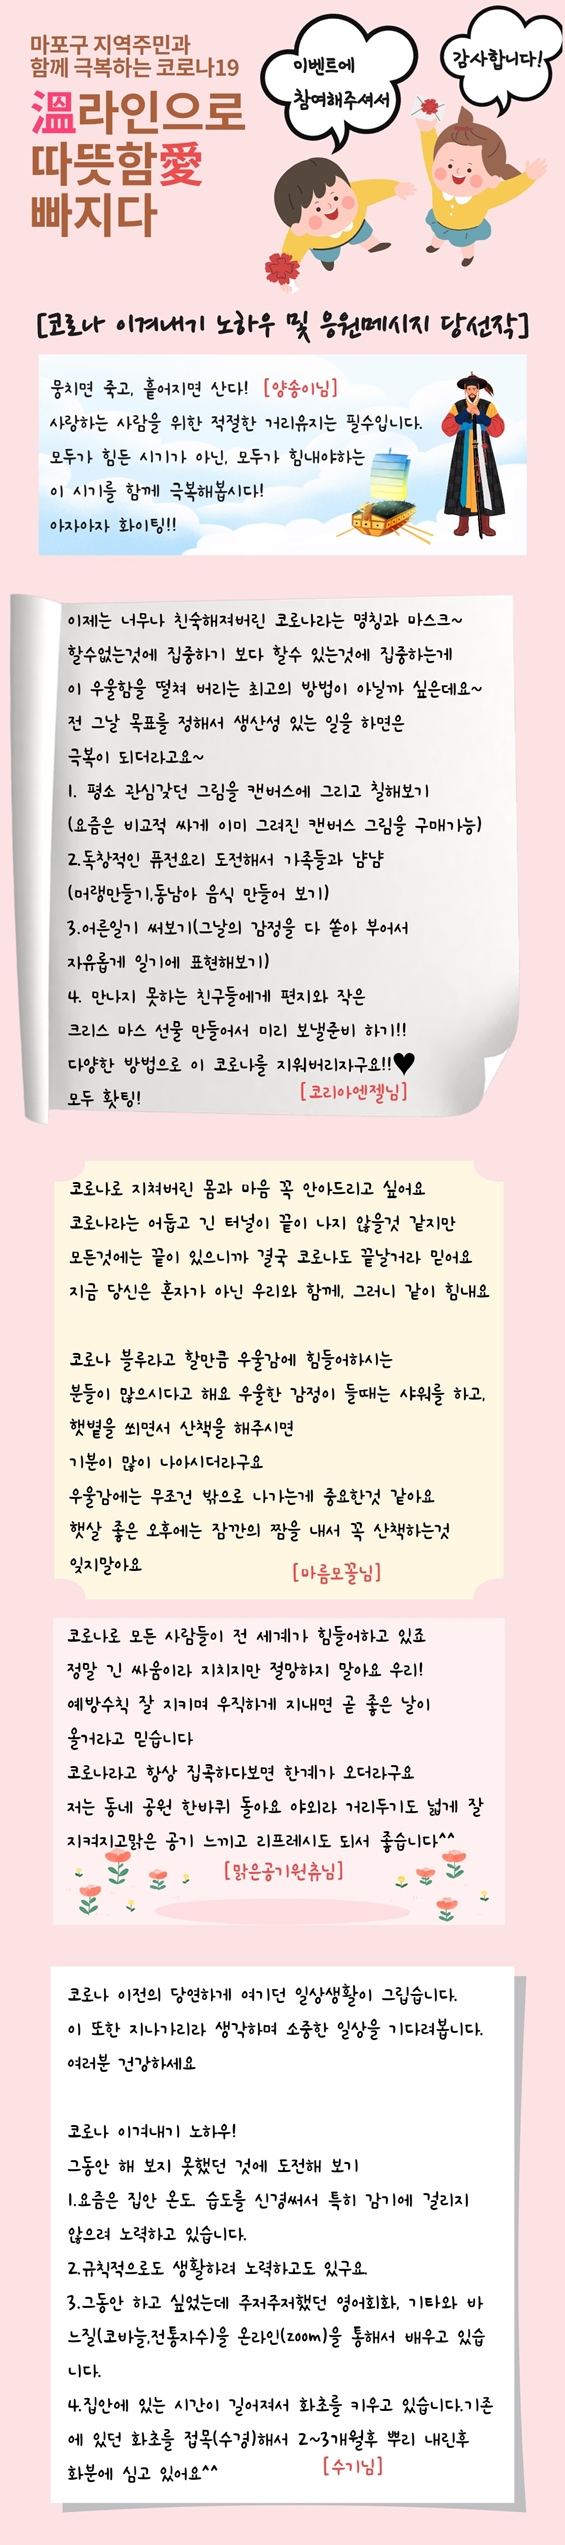 마포구 지역주민과
함께 극복하는 코로나19
溫라인으로
따뜻함愛
빠지다
이벤트에
참여해주셔서
감사합니다!
[코로나 이겨내기 노하우 및 응원메시지 당선작]
뭉치면 죽고, 흩어지면 산다! [양송이님]
사랑하는 사람을 위한 적절한 거리유지는 필수입니다.
모두가 힘든 시기가 아닌, 모두가 힘내야하는
이 시기를 함께 극복해봅시다!
아자아자 화이팅!!
이제는 너무나 친숙해져버린 코로나라는 명칭과 마스크~
할수없는것에 집중하기 보다 할수 있는것에 집중하는게
이 우울함을 떨쳐 버리는 최고의 방법이 아닐까 싶은데요~
전 그날 목표를 정해서 생산성 있는 일을 하면은
극복이 되더라고요~
1. 평소 관심갖던 그림을 캔버스에 그리고 칠해보기
(요즘은 비교적 싸게 이미 그려진 캔버스 그림을 구매가능)
2.독창적인 퓨전요리 도전해서 가족들과 냠냠
(머랭만들기,동남아 음식 만들어 보기)
3.어른일기 써보기(그날의 감정을 다 쏟아 부어서
자유롭게 일기에 표현해보기)
4. 만나지 못하는 친구들에게 편지와 작은
크리스 마스 선물 만들어서 미리 보낼준비 하기!!
다양한 방법으로 이 코로나를 지워버리자구요!!♥
모두 홧팅! [코리아엔젤님]
코로나로 지쳐버린 몸과 마음 꼭 안아드리고 싶어요
코로나라는 어둡고 긴 터널이 끝이 나지 않을것 같지만
모든것에는 끝이 있으니까 결국 코로나도 끝날거라 믿어요
지금 당신은 혼자가 아닌 우리와 함께, 그러니 같이 힘내요
코로나 블루라고 할만큼 우울감에 힘들어하시는
분들이 많으시다고 해요 우울한 감정이 들때는 샤워를 하고,
햇볕을 쐬면서 산책을 해주시면
기분이 많이 나아시더라구요
우울감에는 무조건 밖으로 나가는게 중요한것 같아요
햇살 좋은 오후에는 잠깐의 짬을 내서 꼭 산책하는것
잊지말아요 [마름모꼴님]
코로나로 모든 사람들이 전 세계가 힘들어하고 있죠
정말 긴 싸움이라 지치지만 절망하지 말아요 우리!
예방수칙 잘 지키며 우직하게 지내면 곧 좋은 날이
올거라고 믿습니다
코로나라고 항상 집콕하다보면 한계가 오더라구요
저는 동네 공원 한바퀴 돌아요 야외라 거리두기도 넓게 잘
지켜지고맑은 공기 느끼고 리프레시도 되서 좋습니다^^
[맑은공기원츄님]
코로나 이전의 당연하게 여기던 일상생활이 그립습니다.
이 또한 지나가리라 생각하며 소중한 일상을 기다려봅니다.
여러분 건강하세요
코로나 이겨내기 노하우!
그동안 해 보지 못했던 것에 도전해 보기
1.요즘은 집안 온도. 습도를 신경써서 특히 감기에 걸리지
않으려 노력하고 있습니다.
2.규칙적으로도 생활하려 노력하고도 있구요.
3.그동안 하고 싶었는데 주저주저했던 영어회화, 기타와 바
느질(코바늘,전통자수)을 온라인(zoom)을 통해서 배우고 있습
니다.
4.집안에 있는 시간이 길어져서 화초를 키우고 있습니다.기존
에 있던 화초를 접목(수경)해서 2~3개월후 뿌리 내린후
화분에 심고 있어요^^ [수기님]